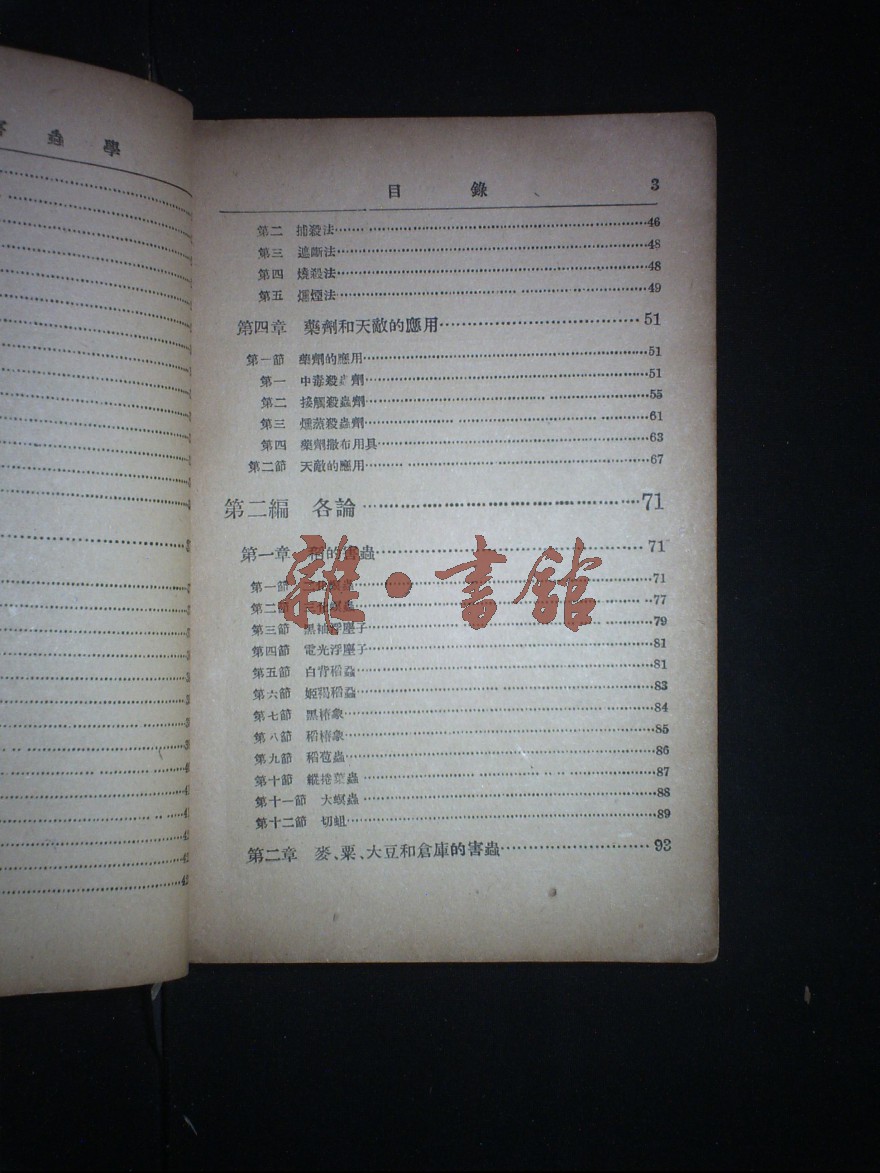 學 蟲
目 錄 3
第二 捕殺法……46
第三 遮斷法……48
第四 燒殺法……48
第五 燻煙法……49
第四章 藥劑和天敵的應用……51
第一節 藥劑的應用……51
第一 中毒殺蟲劑……51
第二 接觸殺蟲劑……55
第三 燻蒸殺蟲劑……61
第四 藥劑撒布用具……63
第二節 天敵的應用……67
第二編 各論……71
第一章 稻的害蟲……71
第一節 二化螟蟲……71
第二節 三化螟蟲……77
第三節 黑袖浮塵子……79
第四節 電光浮塵子……81
第五節 白背稻蝨……81
第六節 姬褐稻蝨……83
第七節 黑椿象……84
第八節 稻椿象……85
第九節 稻苞蟲……86
第十節 縱捲葉蟲……87
第十一節 大螟蟲……88
第十二節 切蛆……89
第二章 麥、粟、大豆和倉庫的害蟲……93
雜·書館